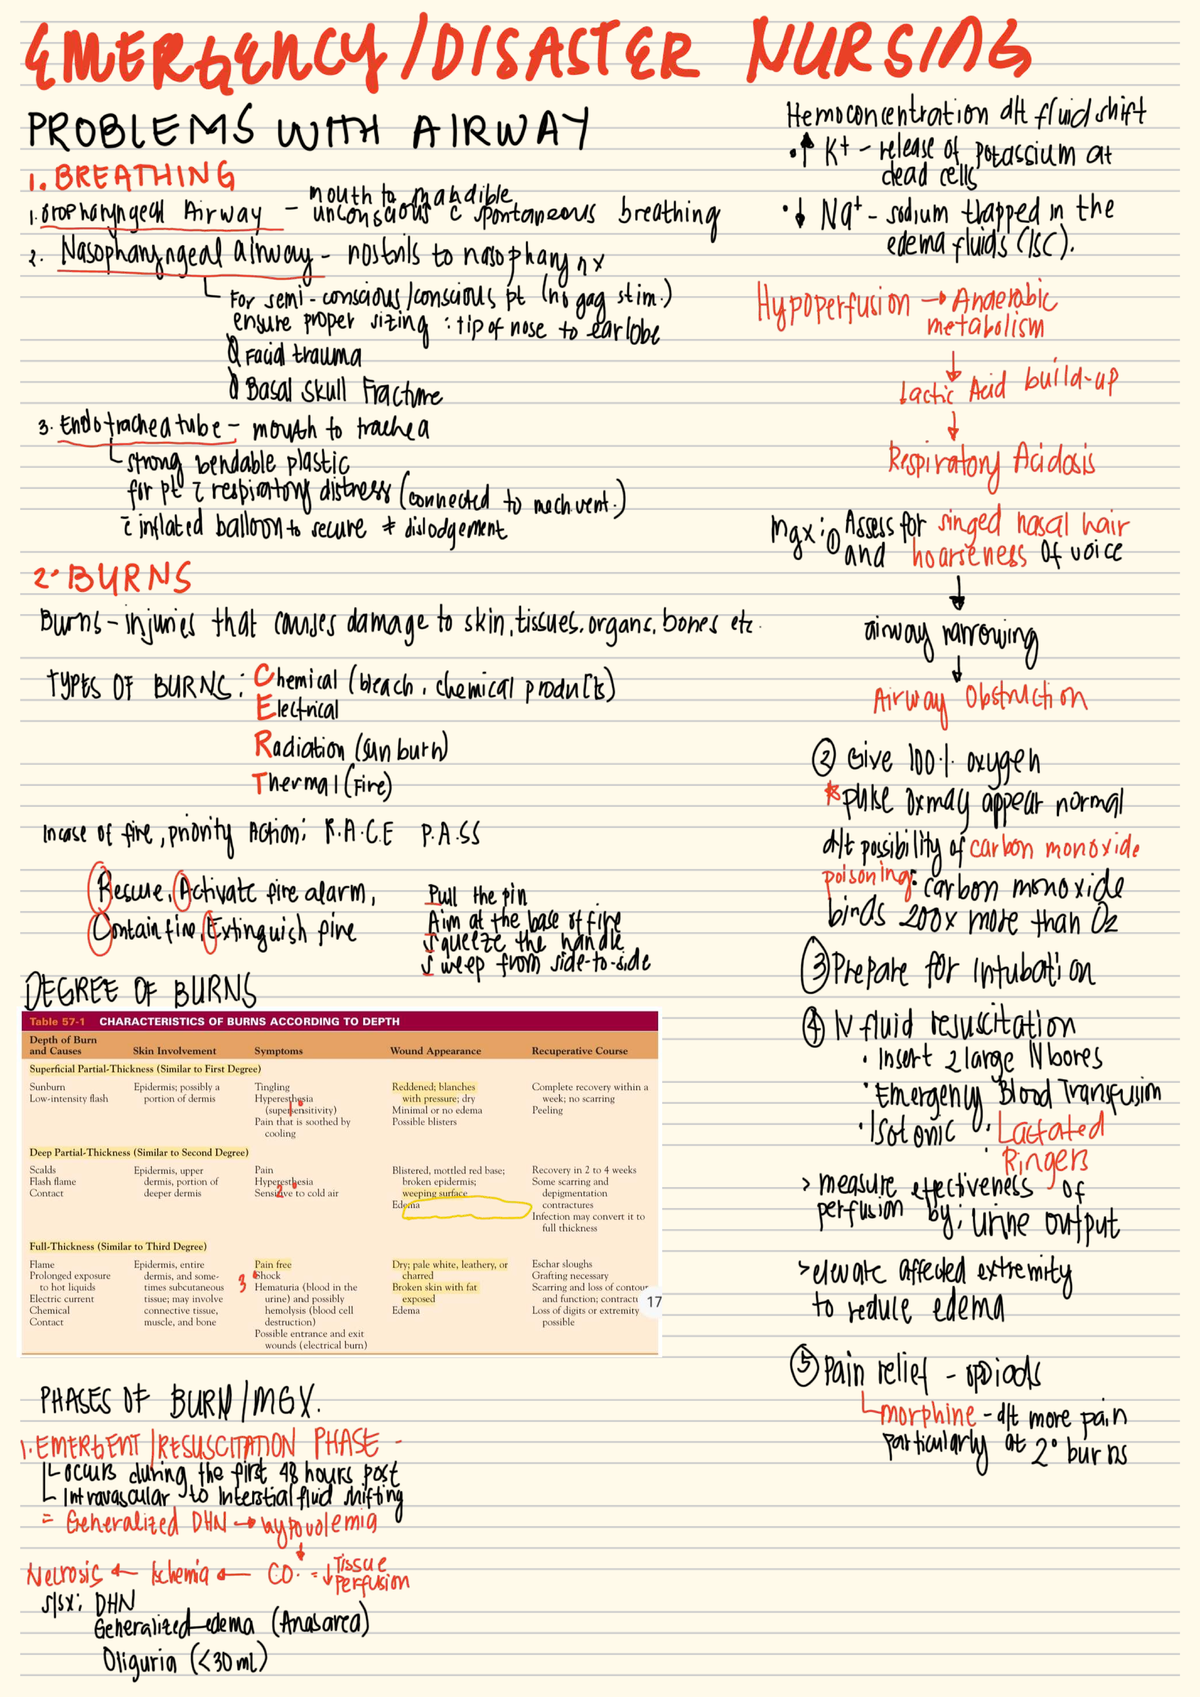 EMERGENCY/DISASTER NURSING
PROBLEMS WITH AIRWAY
1. BREATHING
1. Oropharyngeal Airway - mouth to mandible
unconscious c̄ spontaneous breathing
2. Nasopharyngeal airway - nostrils to nasopharynx
For semi-conscious/conscious pt (no gag stim.)
ensure proper sizing : tip of nose to earlobe
Facial trauma
Basal Skull Fracture
3. Endotrachea tube - mouth to trachea
strong bendable plastic
for pt c̄ respiratory distress (connected to mech vent.)
c̄ inflated balloon to secure ≠ dislodgement
2. BURNS
Burns - injuries that causes damage to skin, tissues, organs, bones etc.
TYPES OF BURNS: Chemical (bleach, chemical products)
Electrical
Radiation (sun burn)
Thermal (Fire)
Incase of fire, priority Action: R.A.C.E P.A.SS
Rescue, Activate fire alarm,
Contain fire, Extinguish fire
Pull the pin
Aim at the base of fire
Squeeze the handle
Sweep from side-to-side
DEGREE OF BURNS
Table 57-1 CHARACTERISTICS OF BURNS ACCORDING TO DEPTH
Depth of Burn and Causes Skin Involvement Symptoms Wound Appearance Recuperative Course
Superficial Partial-Thickness (Similar to First Degree)
Sunburn Epidermis; possibly a Tingling Reddened; blanches Complete recovery within a
Low-intensity flash portion of dermis Hyperesthesia with pressure; dry week; no scarring
(supersensitivity) Minimal or no edema Peeling
Pain that is soothed by Possible blisters
cooling
1°
Deep Partial-Thickness (Similar to Second Degree)
Scalds Epidermis, upper Pain Blistered, mottled red base; Recovery in 2 to 4 weeks
Flash flame dermis, portion of Hyperesthesia broken epidermis; Some scarring and
Contact deeper dermis Sensitive to cold air weeping surface depigmentation
Edema contractures
Infection may convert it to
full thickness
2°
Full-Thickness (Similar to Third Degree)
Flame Epidermis, entire Pain free Dry; pale white, leathery, or Eschar sloughs
Prolonged exposure dermis, and some- Shock charred Grafting necessary
to hot liquids times subcutaneous Hematuria (blood in the Broken skin with fat Scarring and loss of contour
Electric current tissue; may involve urine) and possibly exposed and function; contract
Chemical connective tissue, hemolysis (blood cell Edema Loss of digits or extremity
Contact muscle, and bone destruction) possible
Possible entrance and exit
wounds (electrical burn)
3°
17
PHASES OF BURN/MGX.
1. EMERGENT/RESUSCITATION PHASE -
occurs during the first 48 hours post
Intravascular to Interstial fluid shifting
= Generalized DHN → hypovolemia
↓
Necrosis ← Ischemia ← CO. = ↓ Tissue
Perfusion
s/sx: DHN
Generalized edema (Anasarca)
Oliguria (<30 ml)
Hemoconcentration d/t fluid shift
• ↑ K+ - release of potassium at
dead cells
• ↓ Na+ - sodium trapped in the
edema fluids (ISC).
Hypoperfusion → Anaerobic
metabolism
↓
Lactic Acid build-up
↓
Respiratory Acidosis
mgx: ① Assess for singed nasal hair
and hoarseness of voice
↓
airway narrowing
↓
Airway Obstruction
② Give 100% oxygen
* pulse ox may appear normal
d/t possibility of carbon monoxide
poisoning: carbon monoxide
binds 200x more than O2
③ Prepare for Intubation
④ IV fluid resuscitation
• Insert 2 large IV bores
• Emergency Blood Transfusion
• Isotonic : Lactated
Ringers
> measure effectiveness of
perfusion by: urine output
> elevate affected extremity
to reduce edema
⑤ Pain relief - opioids
morphine - d/t more pain
particularly at 2° burns